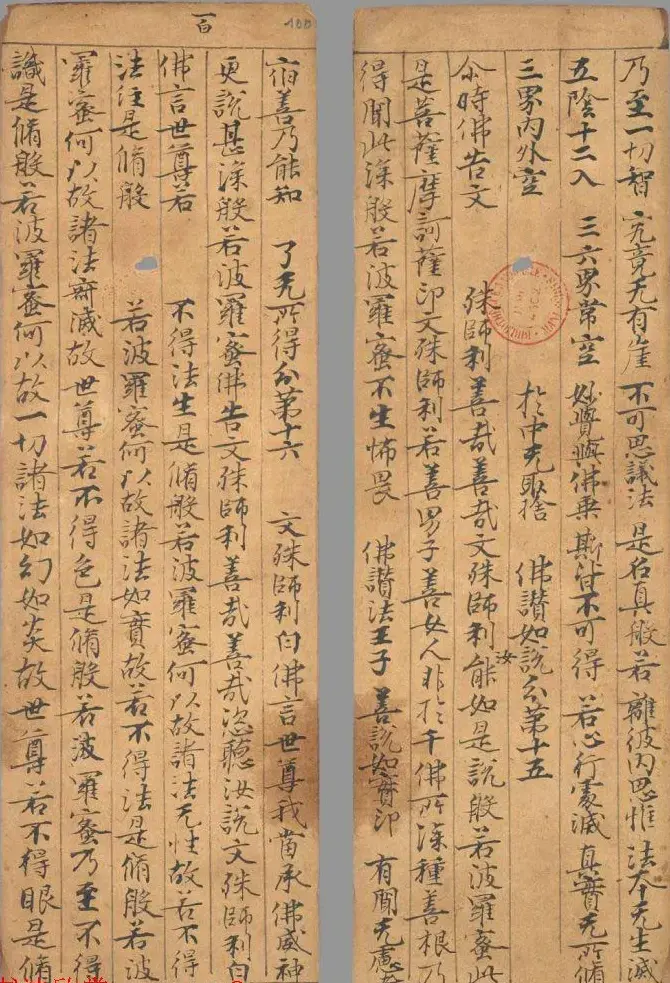 乃至一切智 究竟无有崖 不可思議法 是名真般若 離彼內思惟 法本无生滅
五陰十二入 三六界常空 妙覺與佛乗 斯皆不可得 若心行處滅 真實无所脩
三界內外空 於中无取捨 佛讃如說分第十五
尒時佛告文殊師利善哉善哉文殊師利汝能如是說般若波羅蜜此
是菩薩摩訶薩印文殊師利若善男子善女人非於千佛所深種善根乃
得聞此深般若波羅蜜不生怖畏 佛讃法王子 善說如實印 有聞无慮
一百
100
宿善乃能知 了无所得分第十六 文殊師利白佛言世尊我當承佛威神
更說甚深般若波羅蜜佛告文殊師利善哉善哉恣聽汝說文殊師利白
佛言世尊若不得法生是脩般若波羅蜜何以故諸法无性故若不得
法住是脩般若波羅蜜何以故諸法如實故若不得法是脩般若波
羅蜜何以故諸法寂滅故世尊若不得色是脩般若波羅蜜乃至不得
識是脩般若波羅蜜何以故一切諸法如幻如炎故世尊若不得眼是脩